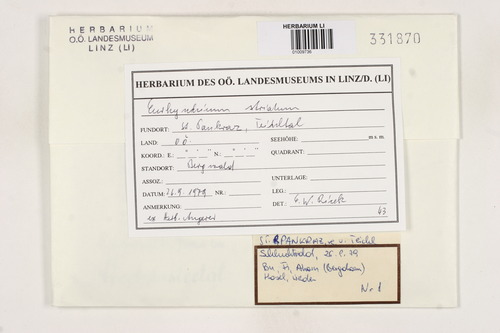 HERBARIUM
O.Ö. LANDESMUSEUM
LINZ (LI)
HERBARIUM LI
01009736
331870
HERBARIUM DES OÖ. LANDESMUSEUMS IN LINZ/D. (LI)
Eurhynchium striatum
FUNDORT: W. Pankraz, Teichltal
LAND: OÖ. SEEHÖHE: m s. m.
KOORD. E.: ° ' " N.: ° ' " QUADRANT:
STANDORT: Bergwald
ASSOZ.: UNTERLAGE:
DATUM: 26.9.1979 NR.: LEG.:
ANMERKUNG: DET.: E. W. Ricek
ex herb. Angerer 43
St. PANKRAZ, w. v. Teichl
Schluchtwald, 26. 9. 79
Bu, Fi, Ahorn (Bergahorn)
Hasel, Weiden
Nr. 1